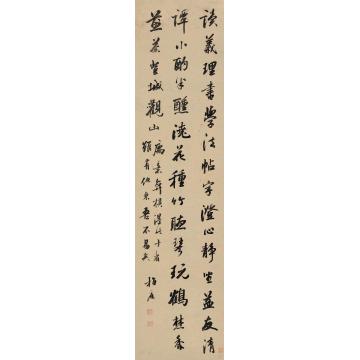 讀義理書學法帖字澄心靜坐益友清
譚小酌半醺澆花種竹聽琴玩鶴焚香
煎茶登城觀山寓意弈棋此十者
雖有他樂吾不易矣